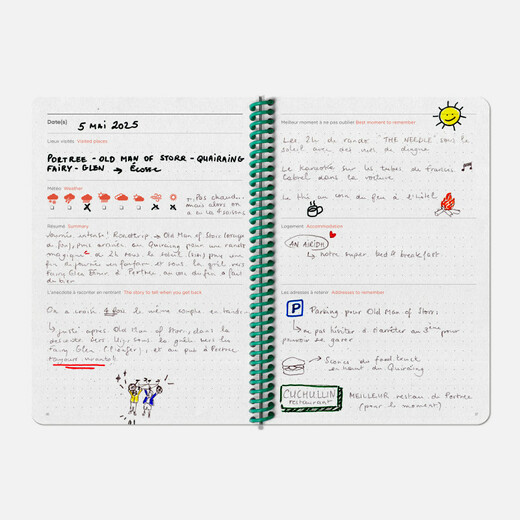 Date(s) 5 MAI 2025
Lieux visités Visited places
PORTREE - OLD MAN OF STORR - QUAIRAING
FAIRY - GLEN → Écosse
Météo Weather
Pas chaud...
mais alors on
a eu les 4 saisons
Résumé Summary
Journée intense! Roadtrip → Old Man of Storr
, puis arrivée au Quiraing pour une rando
magique de 2h sous le soleil pour une
fin de journée sous la grêle vers
Fairy Glen Retour à Portree au coin du feu
du bien
L'anecdote à raconter en rentrant The story to tell when you get back
On a croisé 4 fois le même couple
↳ juste après Old Man of Storr, dans la
descente vers Uig, sous la grêle vers les
Fairy Glen, et au pub à Portree
Meilleur moment à ne pas oublier Best moment to remember
Les 2h de rando "THE NEEDLE" sous le
soleil avec des vues de dingue
Le karaoké sur les tubes de Francis
Cabrel dans la voiture
Le thé au coin du feu à l'hôtel
Logement Accommodation
AN AIRIDH
↳ notre super bed & breakfast
Les adresses à retenir Addresses to remember
P Parking pour Old Man of Storr:
↳ ne pas hésiter à s'arrêter au 3ème pour
pouvoir se garer
→ Scones du food truck
en haut du Quiraing
CUCHULLIN
restaurant
MEILLEUR restau de Portree
(pour le moment)